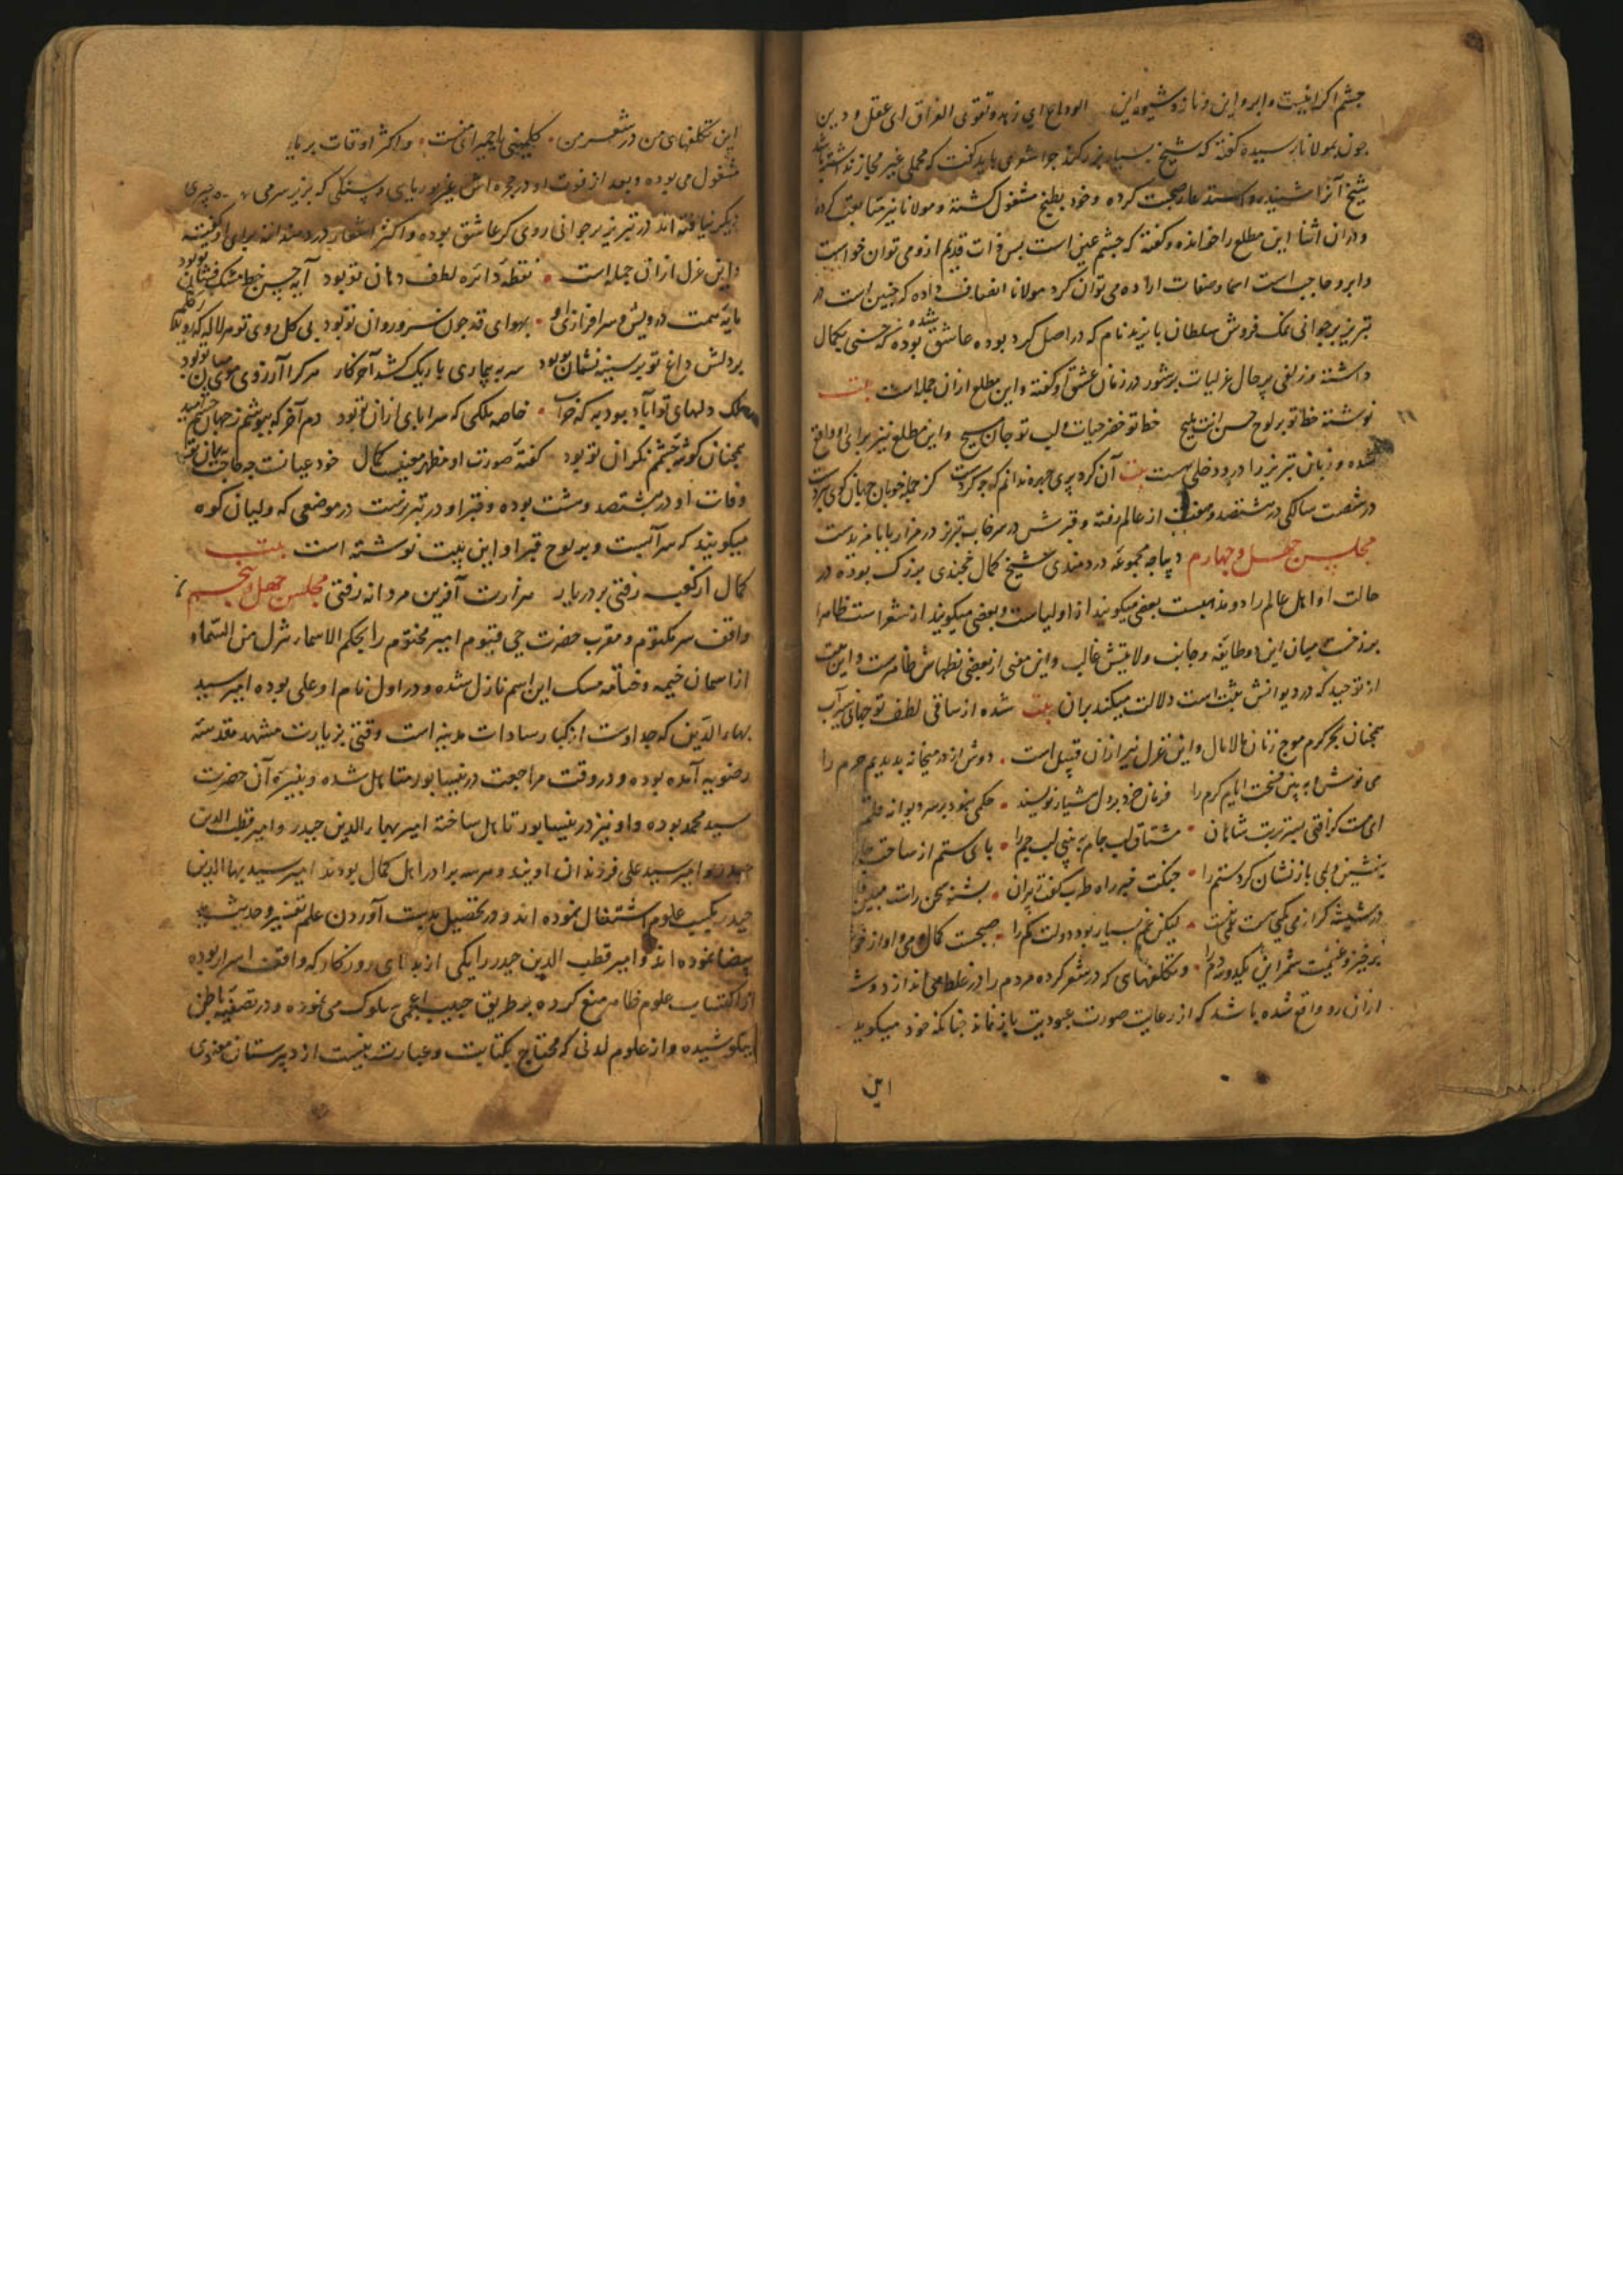 چشم اگر اینست و ابرو این و ناز و شیوه این الوداع ای زهد و تقوی الفراق ای عقل و دین
چون بمولانا رسیده گفته که شیخ بسیار بزرگند چرا شعری باید گفت که محملی غیر مجاز نداشته باشد
شیخ آنرا شنیده و استدعا صحبت کرده و خود بطبخ مشغول گشته و مولانا نیز متابعت کرده
و دران اثنا این مطلع را خوانده و گفته که چشم عین است پس ذات قدیم ازو می توان خواست
و ابرو حاجب است اسما و صفات اراده می توان کرد مولانا انصاف داده که چنین است در
تبریز بر جوانی نمک فروش سلطان بایزید نام که در اصل کرد بوده عاشق شده بوده که حسنی بکمال
داشته و زلفی پر حال غزلیات پرشور در زمان عشق او گفته و این مطلع ازان جمله است بیت
نوشته خط تو بر لوح حسن انت ملیح خط تو خضر حیات و لب تو جان مسیح و این مطلع نیز برای او واقع
شده و زبان تبریز را درو دخلی هست بیت آن کرد پری چهره ندانم که چه کردست کز جمله خوبان جهان گوی ببردست
در شصت سالگی در هشتصد و هفت از عالم رفته و قبرش در سرخاب تبریز در مزار بابا مزیدست
مجلس چهل و چهارم دیباجه مجموعه دردمندی شیخ کمال خجندی بزرگ بوده در
حالت او اهل عالم را دو مذهبست بعضی میگویند از اولیاست و بعضی میگویند از شعراست ظاهرا
برزخست میان این دو طایفه و جانب ولایتش غالب و این معنی از بعضی نظمهاش ظاهرست و این بیت
از توحید که در دیوانش ثبت است دلالت میکند بران بیت شده از ساقی لطف تو جهانی سیراب
همچنان بحر کرم موج زنان مالامال و این غزل نیز ازان قبیل است دوش از در میخانه بدیدیم حرم را
می نوش و به بین قسمت ایام کرم را فرمان خرد بر دل هشیار نویسند حکمی نبود بر سر دیوانه قلم
ای مست گر افتی بسر تربت شاهان مشتاق لب جام به بینی لب جم را پای ستم از ساحت
بنشین و می باز نشان گرد ستم را چنگت خبر راه طرب گفت بپران بشنو سخن راست مبین
در شیشه گر از می کمی هست غمی نیست لیکن غم بسیار بود دولت کم را صحبت کمال و می و آواز خو
برخیز و غنیمت شمر این یکدو سه دم را و تکلفهای که در شعر کرده مردم را در غلط می اندازد و
ازان رو واقع شده باشد که از رعایت صورت عبودیت باز نماند چنانکه خود میگوید
این
این تکلفهای من در شعر من کلمینی یا حمیرای منست و اکثر اوقات بر
مشغول می بوده و بعد از فوت او در حجره اش بغیر بوریای و سنگی که بزیر سر می چیزی
دیگر نیافته اند در تبریز بر جوانی روی گر عاشق بوده و اکثر اشعار دردمندانه برای او گفته
و این غزل ازان جمله است نقطه دائره لطف دهان تو بود آیه حسن خط مشک فشان تو بود
مایه سمت درویش و سرافرازی او بهوای قد چون سرو روان تو بود بی گل روی توام لاله که روید ز گلم
بر دلش داغ تو بر سینه نشان تو بود سر به بیماری باریک کشد آخر کار هرکرا آرزوی موی میان تو بود
ملک دلهای تو آباد بود به که خراب خاصه ملکی که سراپای ازان تو بود دم آخر که بپوشم ز جهان چشم امید
همچنان گوشه چشم نگران تو بود گفته صورت او مظهر معنیست کمال خود عیانست چه حاجت به بیان تو بود
وفات او در هشتصد و هشت بوده و قبر او در تبریزست در موضعی که ولیان کوه
میگویند که سرآبست و بر لوح قبر او این بیت نوشته است بیت
کمال از کعبه رفتی بر در یار هزارت آفرین مردانه رفتی مجلس چهل و پنجم
واقف سر مکتوم و مقرب حضرت حی قیوم امیر مختوم را بحکم الاسماء تنزل من السماء
از آسمان خیمه و ختامه مسک این اسم نازل شده و در اول نام او علی بوده امیر سید
بهاء الدین که جد اوست از کبار سادات مدینه است وقتی بزیارت مشهد مقدسه
رضویه آمده بوده و در وقت مراجعت در نیشابور متاهل شده و نبیره آن حضرت
سید محمد بوده و او نیز در نیشابور تاهل ساخته امیر بهاء الدین حیدر و امیر قطب الدین
حیدر و امیر سید علی فرزندان اویند و هر سه برادر اهل کمال بودند امیر سید بهاء الدین
حیدر بکسب علوم اشتغال نموده اند و در تحصیل بدست آوردن علم تفسیر و حدیث ید
بیضا نموده اند و امیر قطب الدین حیدر را یکی از بدلای روزگار که واقف اسرار بوده
از اکتساب علوم ظاهر منع کرده بر طریق حبیب اعجمی سلوک می نموده و در تصفیه باطن
میکوشیده و از علوم لدنی که محتاج بکتابت و عبارت نیست از دبیرستان معنوی